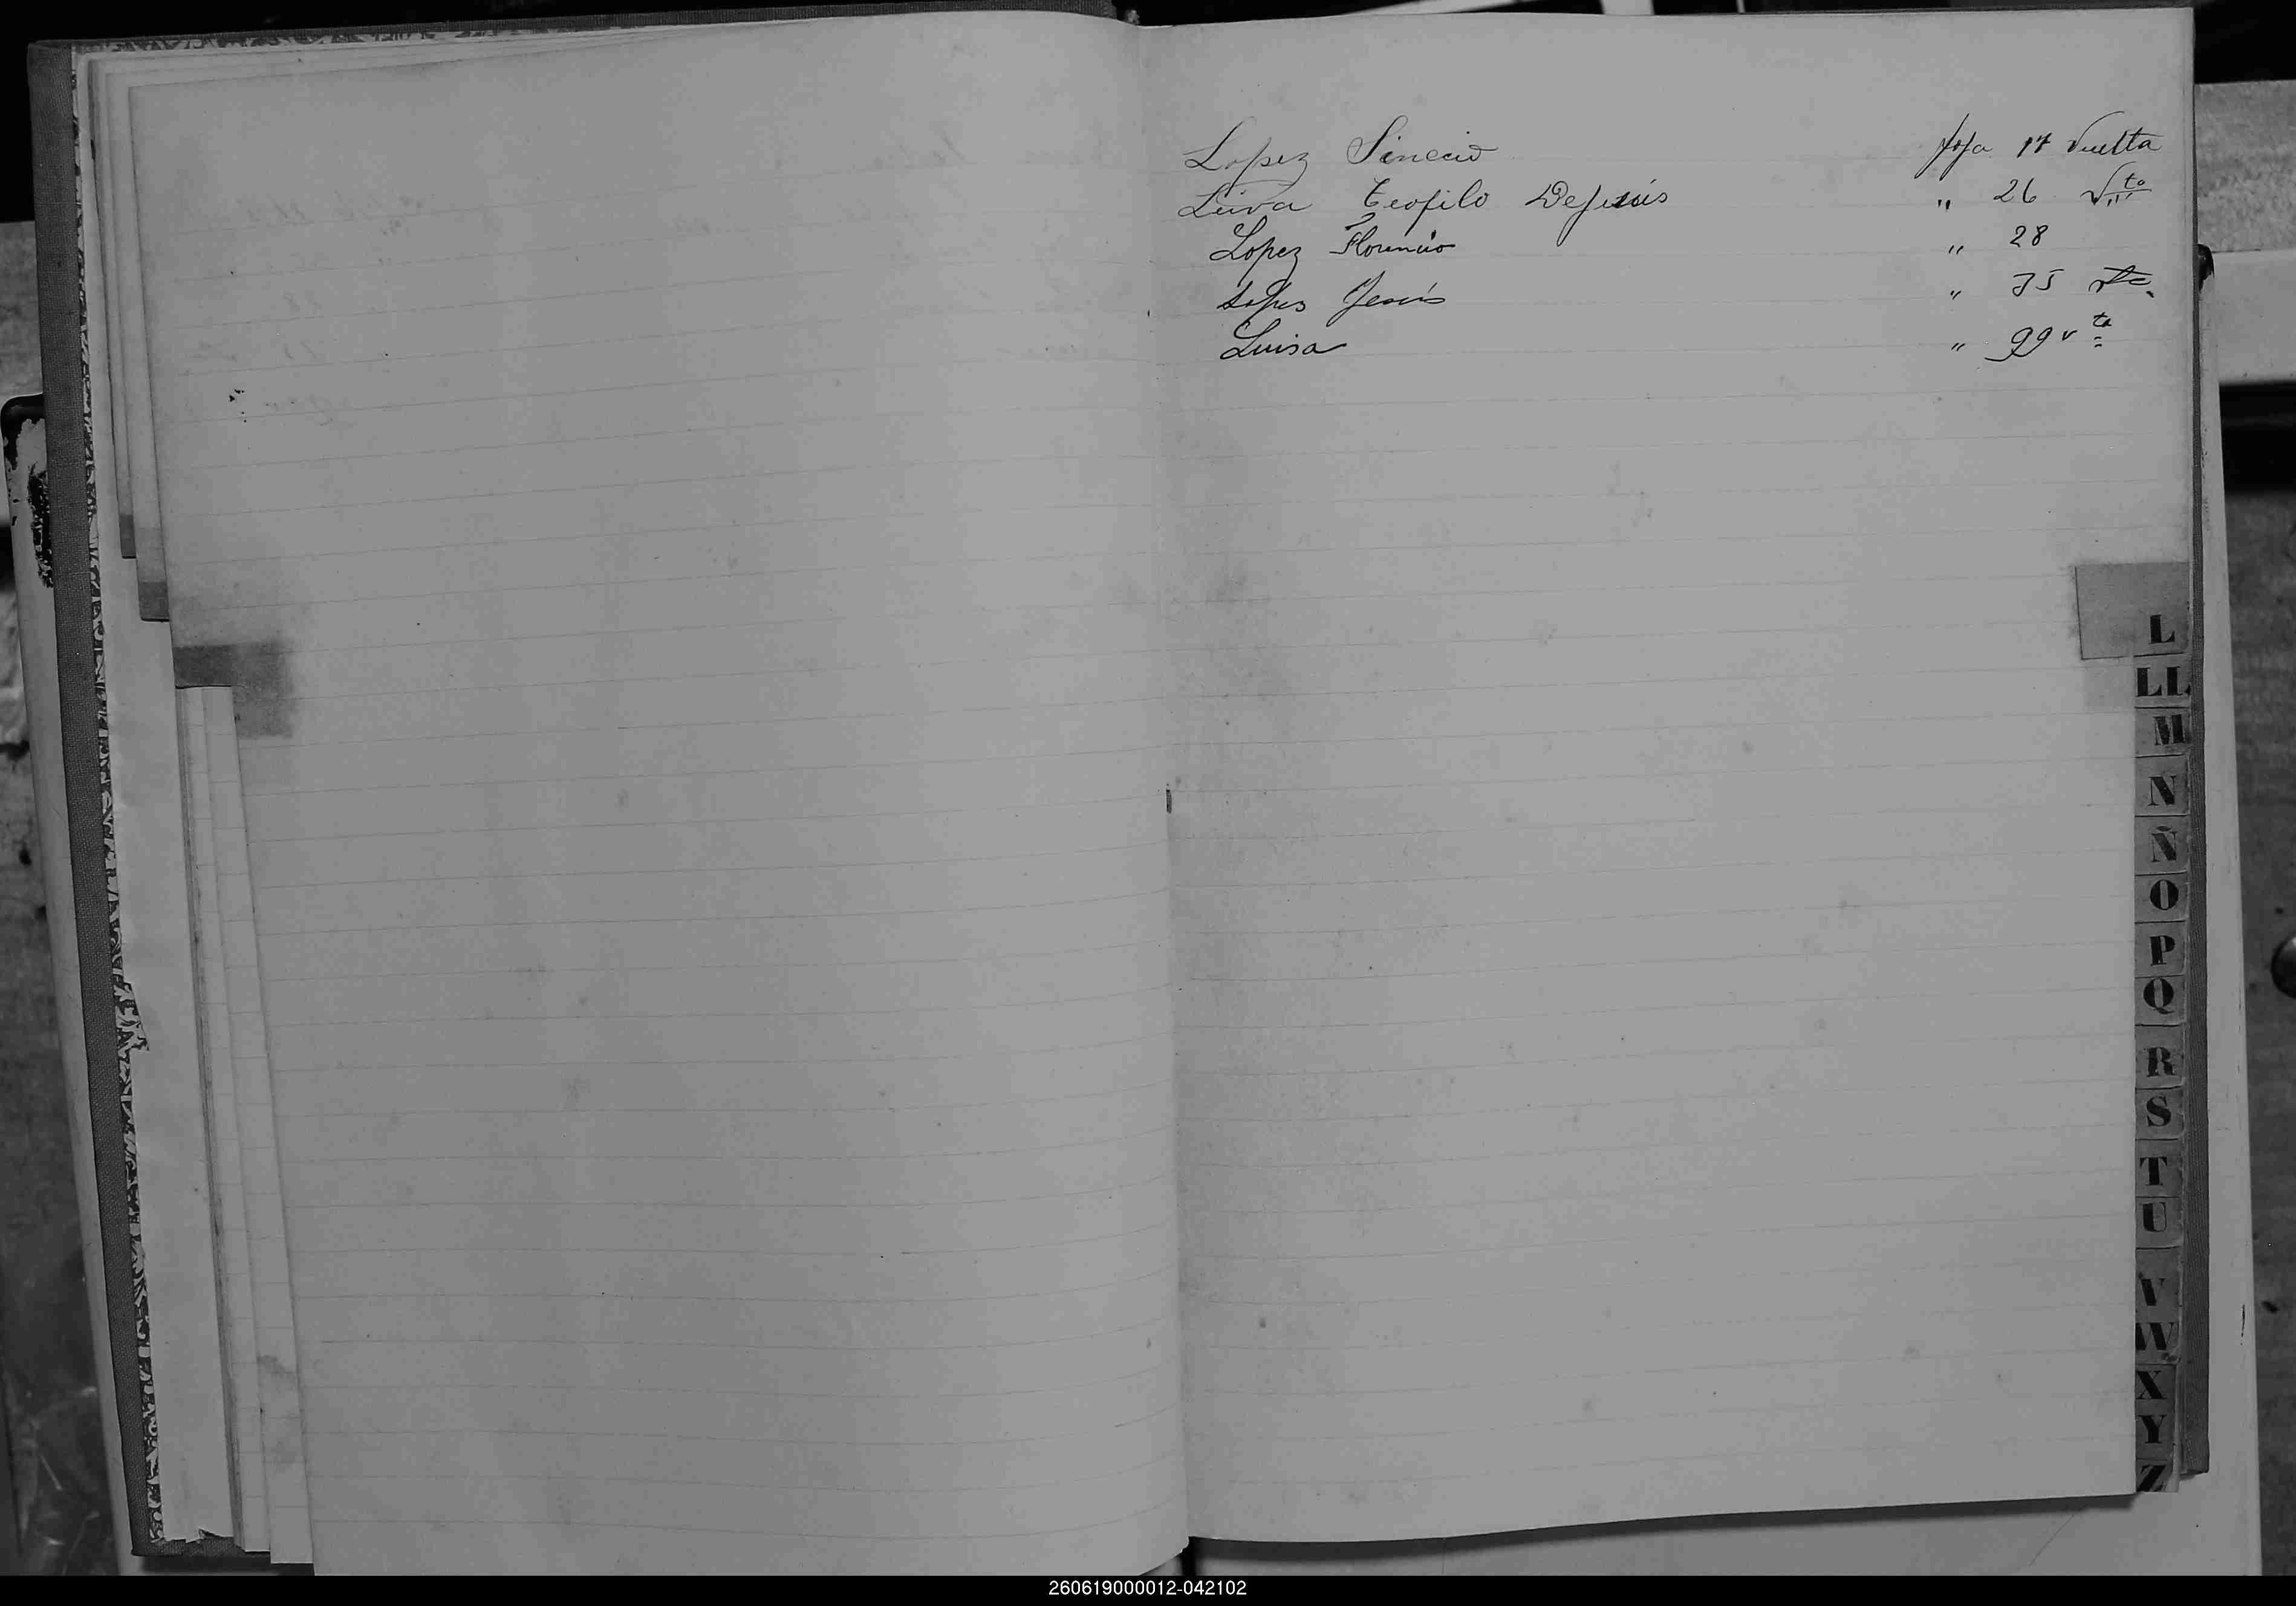 Lopez Sinecio foja 17 Vuelta
Leiva Teofilo DeJesús " 26 Vto
Lopez Florencio " 28
Lopes Jesús " 75 vta.
Luisa " 99 vta
L
LL
M
N
Ñ
O
P
Q
R
S
T
U
V
W
X
Y
Z
260619000012-042102